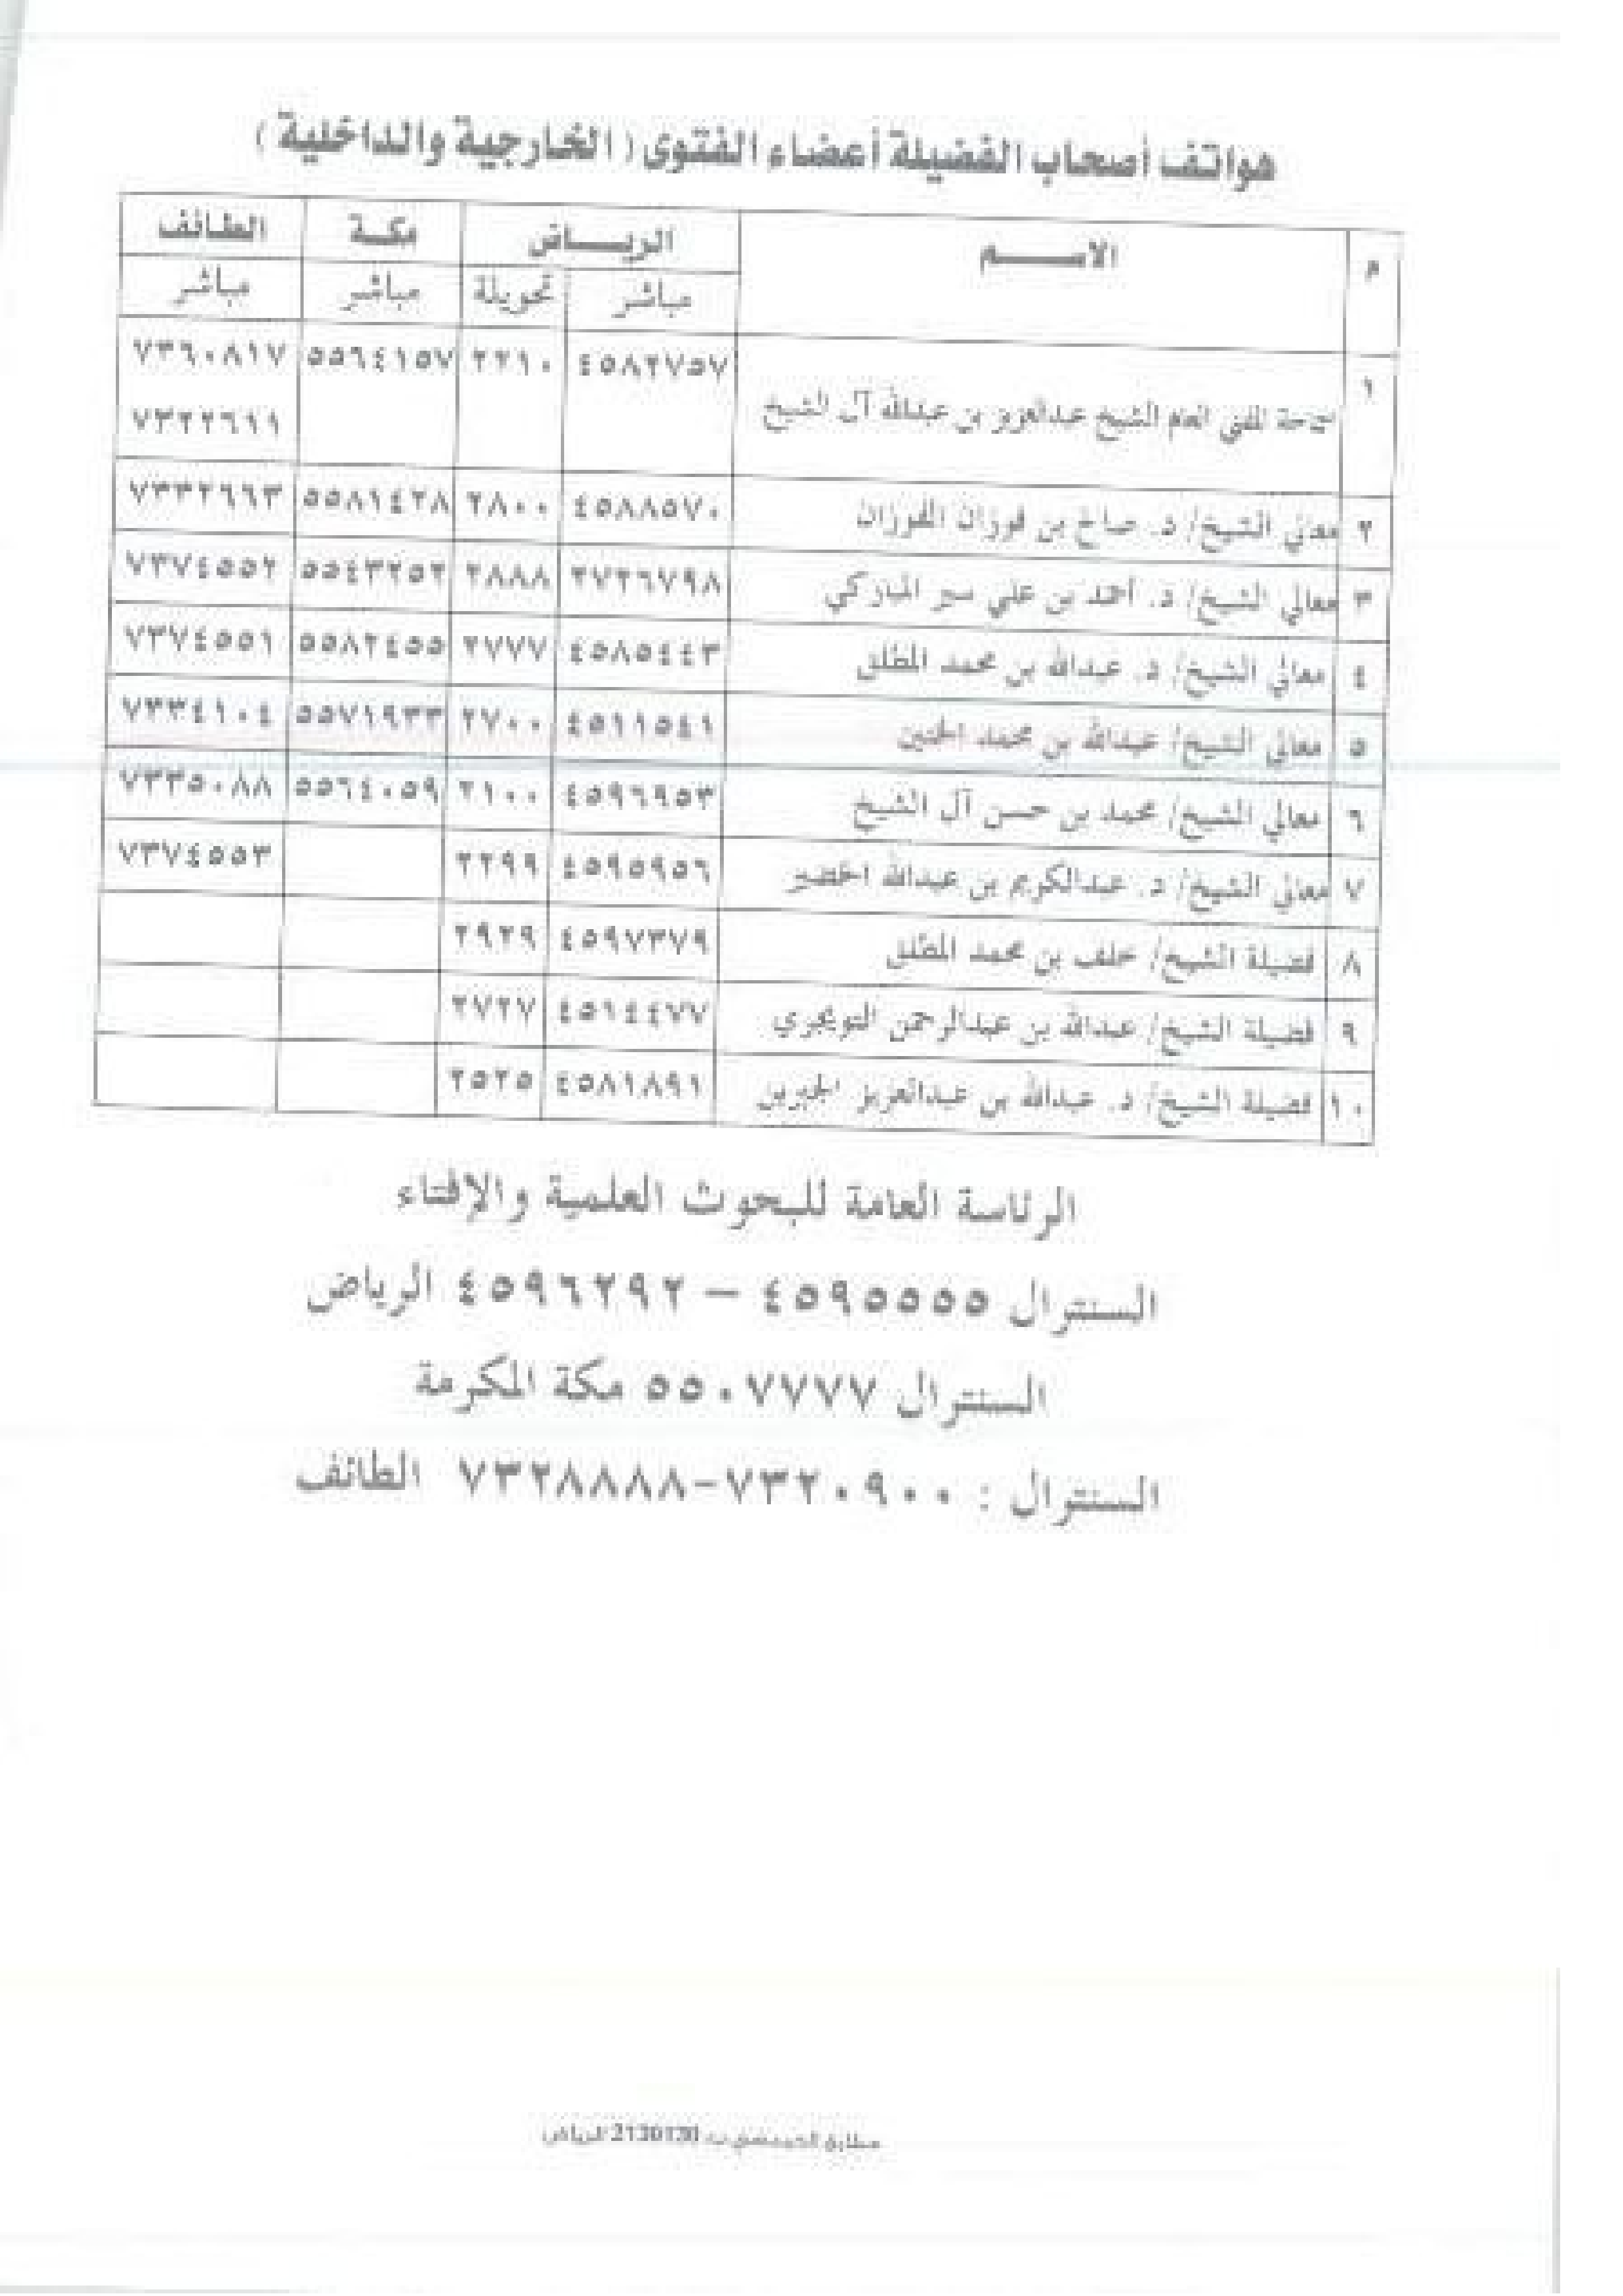 هواتف أصحاب الفضيلة أعضاء الفتوى ( الخارجية والداخلية )
م الاســـــم الريـــــاض مكـة الطائف
مباشر تحويلة مباشر مباشر
١ سماحة المفتي العام الشيخ عبدالعزيز بن عبدالله آل الشيخ ٤٥٨٢٧٥٧ ٢٢١٠ ٥٥٦٤١٥٧ ٧٣٦٠٨١٧
٧٣٢٢٦١١
٢ معالي الشيخ/ د. صالح بن فوزان الفوزان ٤٥٨٨٥٧٠ ٢٨٠٠ ٥٥٨١٤٢٨ ٧٣٣٢٦٦٣
٣ معالي الشيخ/ د. أحمد بن علي سير المباركي ٢٧٢٦٧٩٨ ٢٨٨٨ ٥٥٤٣٢٥٢ ٧٣٧٤٥٥٢
٤ معالي الشيخ/ د. عبدالله بن محمد المطلق ٤٥٨٥٤٤٣ ٢٧٧٧ ٥٥٨٢٤٥٥ ٧٣٧٤٥٥١
٥ معالي الشيخ/ عبدالله بن محمد الخنين ٤٥١١٥٤١ ٢٧٠٠ ٥٥٧١٩٣٣ ٧٣٣٤١٠٤
٦ معالي الشيخ/ محمد بن حسن آل الشيخ ٤٥٩٦٩٥٣ ٢١٠٠ ٥٥٦٤٠٥٩ ٧٣٣٥٠٨٨
٧ معالي الشيخ/ د. عبدالكريم بن عبدالله الخضير ٤٥٩٥٩٥٦ ٢٢٩٩ ٧٣٧٤٥٥٣
٨ فضيلة الشيخ/ خلف بن محمد المطلق ٤٥٩٧٣٧٩ ٢٩٢٩
٩ فضيلة الشيخ/ عبدالله بن عبدالرحمن التويجري ٤٥١٤٤٧٧ ٢٧٢٧
١٠ فضيلة الشيخ/ د. عبدالله بن عبدالعزيز الجبرين ٤٥٨١٨٩١ ٢٥٢٥
الرئاسة العامة للبحوث العلمية والإفتاء
السنترال ٤٥٩٥٥٥٥ – ٤٥٩٦٢٩٢ الرياض
السنترال ٥٥٠٧٧٧٧ مكة المكرمة
السنترال : ٧٣٢٠٩٠٠-٧٣٢٨٨٨٨ الطائف
مطابع 2130130 الرياض